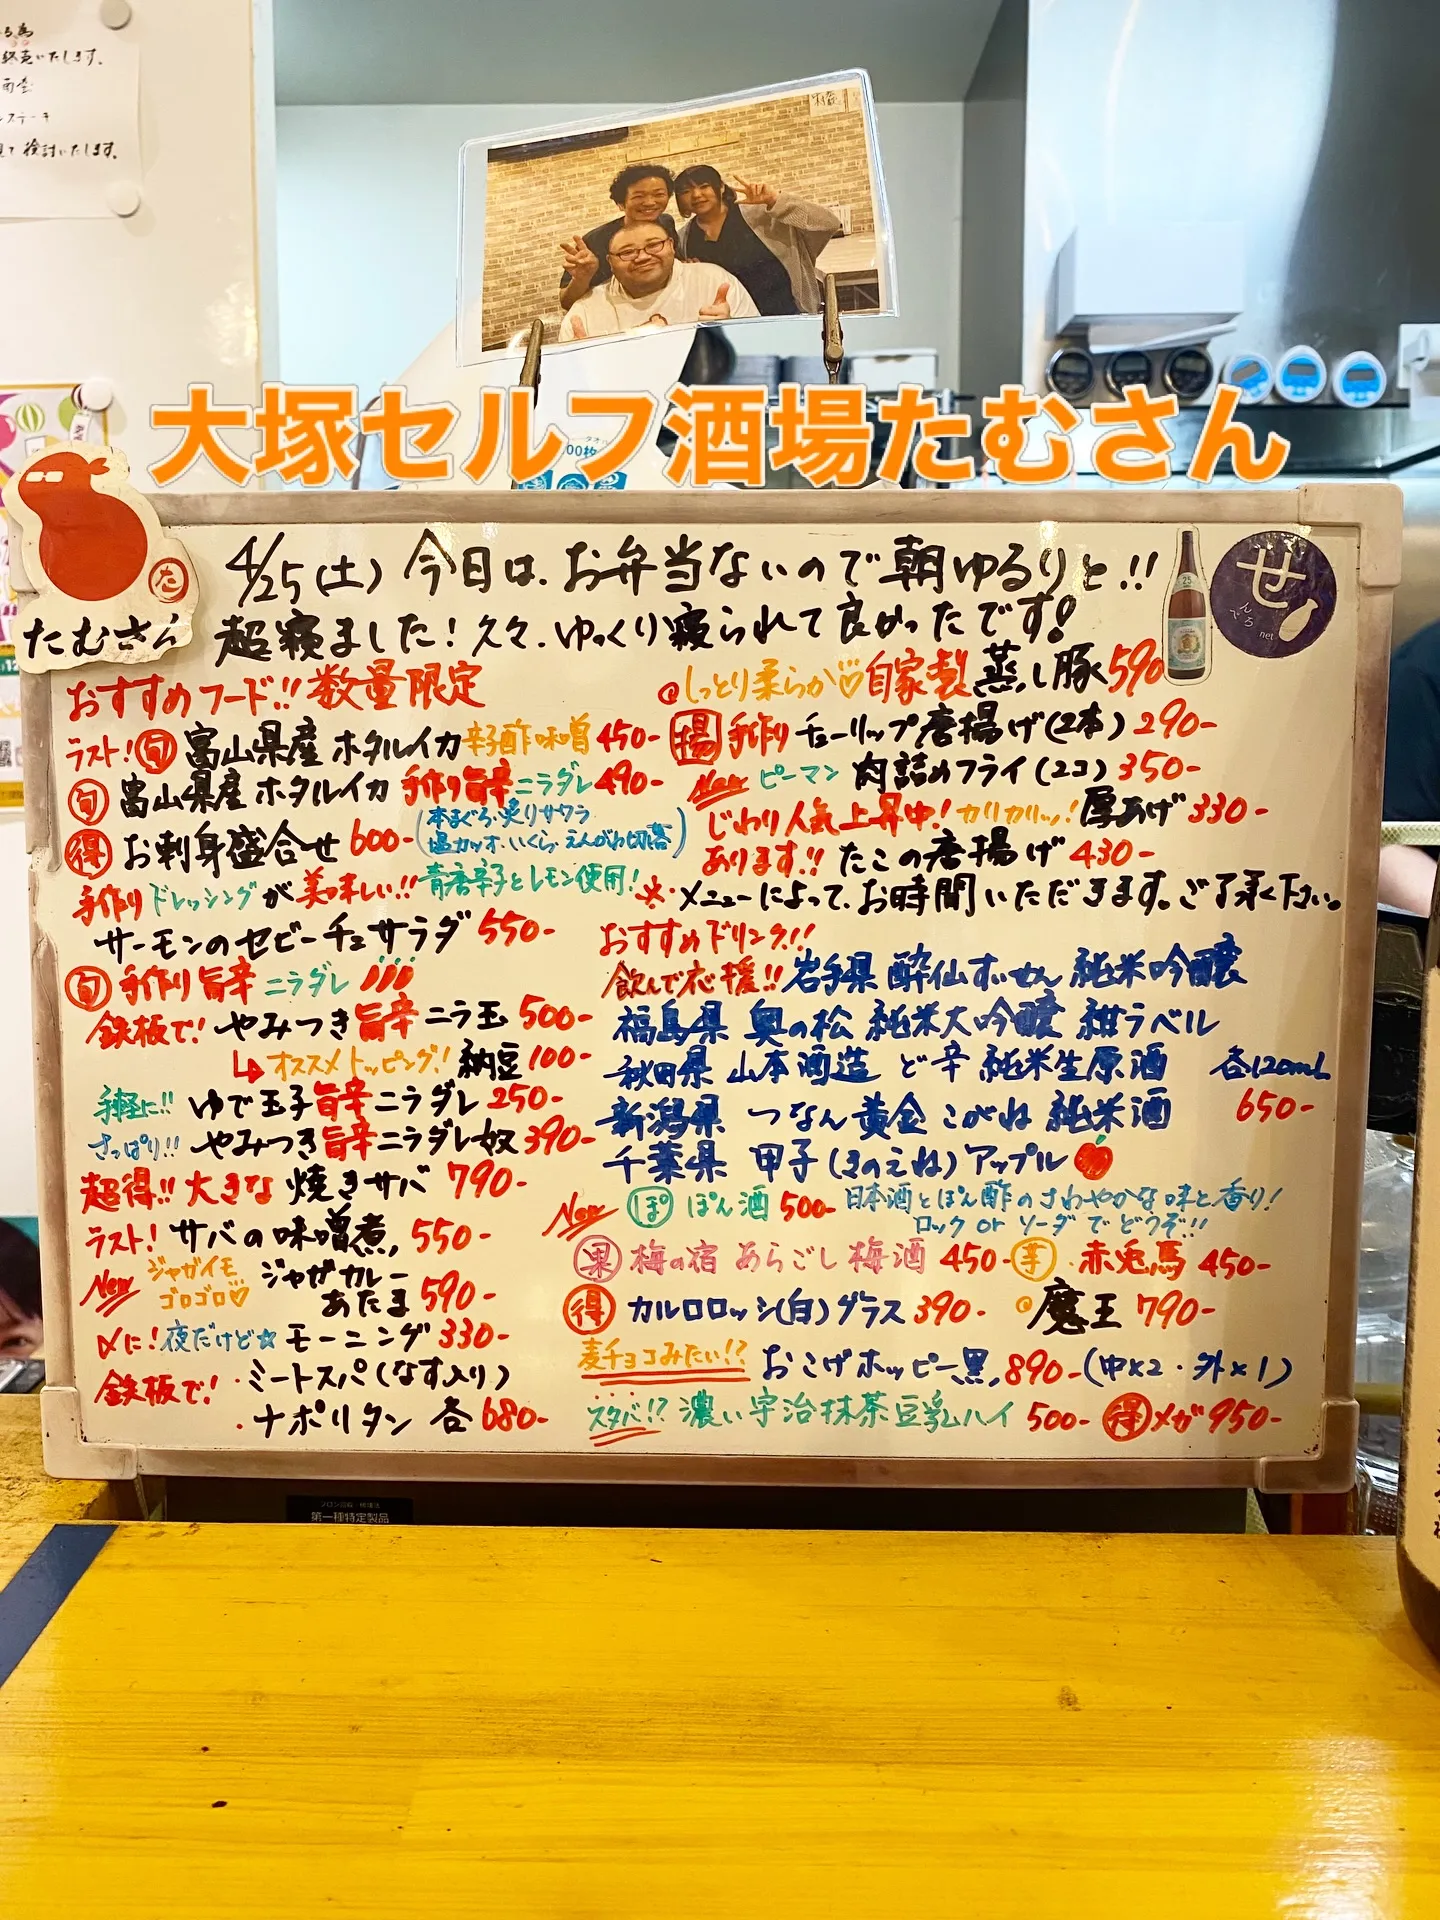 終売いたします。
検討いたします。
大塚セルフ酒場たむさん
た
たむさん
4/25(土) 今日は、お弁当ないので朝ゆるりと!!
超寝ました! 久々、ゆっくり寝られて良かったです!
25
せ
んべろ
net
おすすめフード!! 数量限定
ラスト! 旬 富山県産 ホタルイカ 辛子酢味噌 450-
旬 富山県産 ホタルイカ 手作り旨辛ニラダレ 490-
得 お刺身盛合せ 600- (本まぐろ・炙りサワラ
塩カツオ・いくら・えんがわ切落)
手作りドレッシングが美味しい!! 青唐辛子とレモン使用!
サーモンのセビーチェサラダ 550-
旬 手作り旨辛ニラダレ
鉄板で! やみつき旨辛ニラ玉 500-
↳オススメトッピング! 納豆 100-
手軽に!! ゆで玉子旨辛ニラダレ 250-
さっぱり!! やみつき旨辛ニラダレ奴 390-
超得!! 大きな 焼きサバ 790-
ラスト! サバの味噌煮 550-
New ジャガイモゴロゴロ♡ ジャガカレーあたま 590-
〆に! 夜だけど☆ モーニング 330-
鉄板で! ・ミートスパ(なす入り)
・ナポリタン 各680-
しっとり柔らか♡自家製 蒸し豚 590
揚 手作り チューリップ唐揚げ(2本) 290-
New ピーマン 肉詰めフライ(2コ) 350-
じわり人気上昇中! カリカリッ! 厚あげ 330-
あります!! たこの唐揚げ 430-
※・メニューによって、お時間いただきます。ご了承く下さい。
おすすめドリンク!!
飲んで応援!! 岩手県 酔仙すいせん 純米吟醸
福島県 奥の松 純米大吟醸 紺ラベル
秋田県 山本酒造 ど辛 純米生原酒 各120mL
新潟県 つなん黄金 こがね 純米酒 650-
千葉県 甲子(きのえね)アップル
New ぽ ぽん酒 500- 日本酒とぽん酢のさわやかな味と香り!
ロック or ソーダでどうぞ!!
果 梅の宿 あらごし梅酒 450- 芋・赤兎馬 450-
得 カルロロッシ(白)グラス 390- 魔王 790-
麦チョコみたい!? おこげホッピー黒 890-(中×2・外×1)
スタバ!? 濃い宇治抹茶豆乳ハイ 500- 得メガ 950-
第一種特定製品